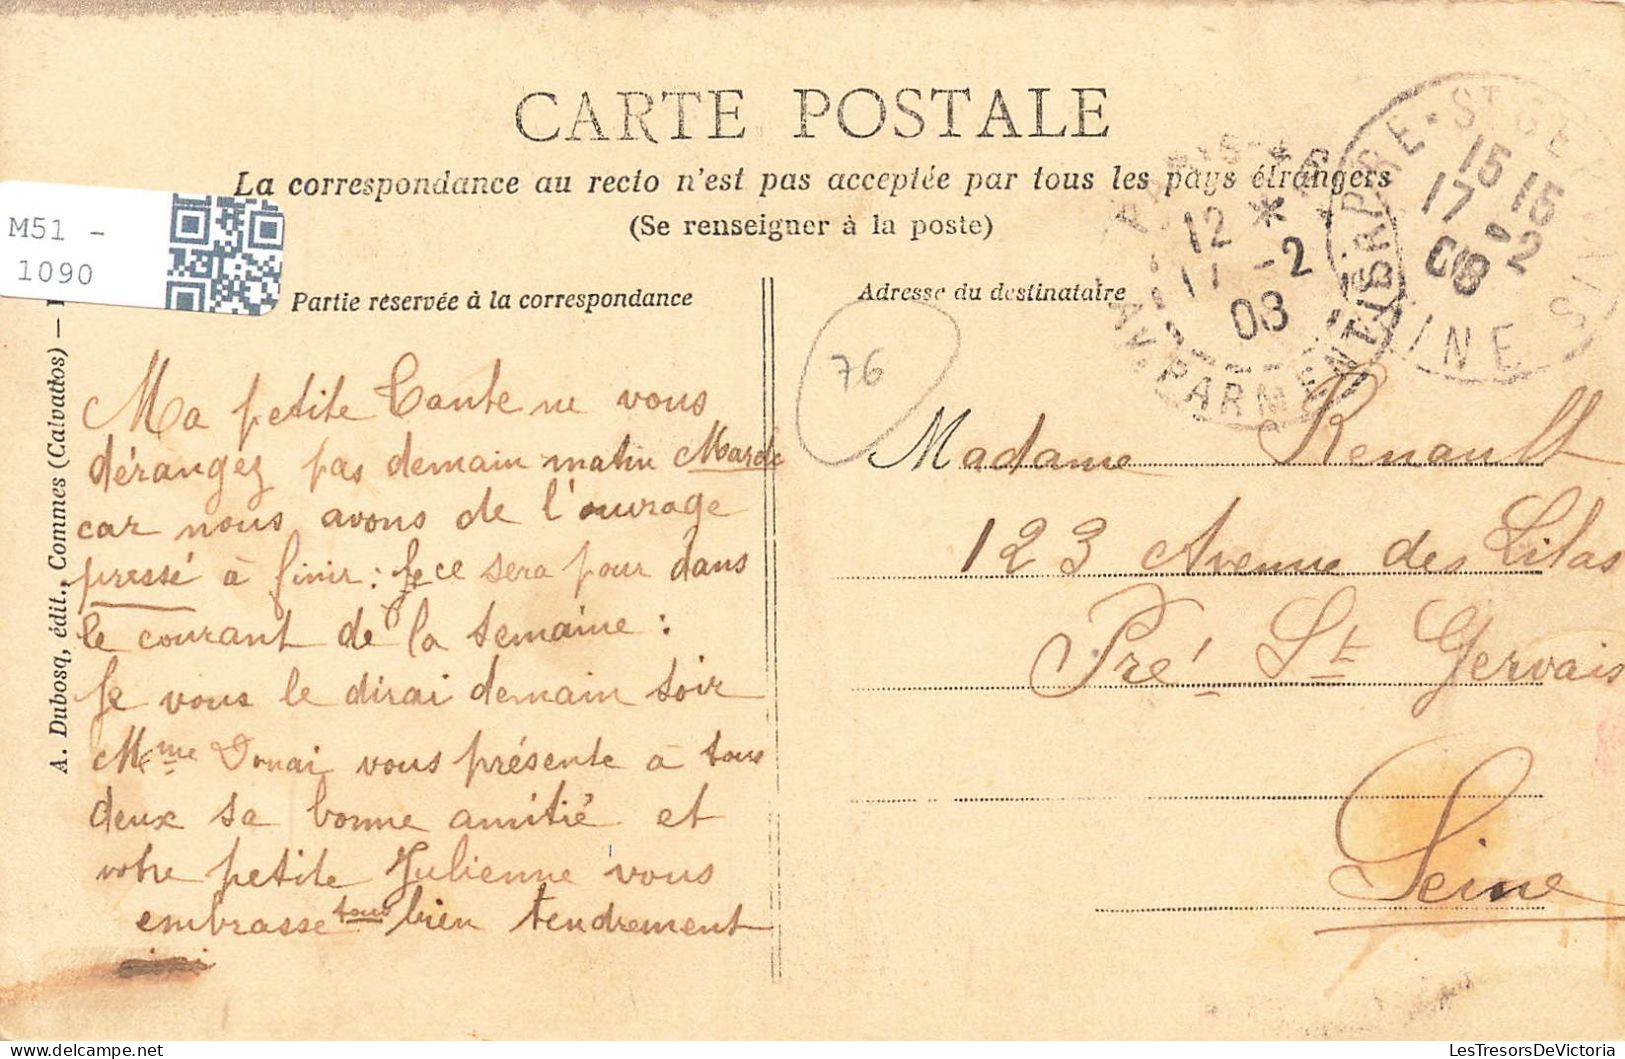 CARTE POSTALE
La correspondance au recto n'est pas acceptée par tous les pays étrangers
(Se renseigner à la poste)
M51 -
1090
Partie réservée à la correspondance
Adresse du destinataire
A. Dubosq, édit., Commes (Calvados) —
Ma petite Tante ne vous
dérangez pas demain matin Mardi
car nous avons de l'ouvrage
pressé à finir : ce sera pour dans
le courant de la semaine :
Je vous le dirai demain soir
Mme vous présente à tous
deux sa bonne amitié et
votre petite Julienne vous
embrasse tous bien tendrement
76
Madame Renault
123 Avenue des Lilas
Pré St Gervais
Seine
12 *
17 -2
08
AV. PARMENTIER
PRE-ST GERVAIS
15 15
17 -2
08
SEINE
LesTresorsDeVictoria